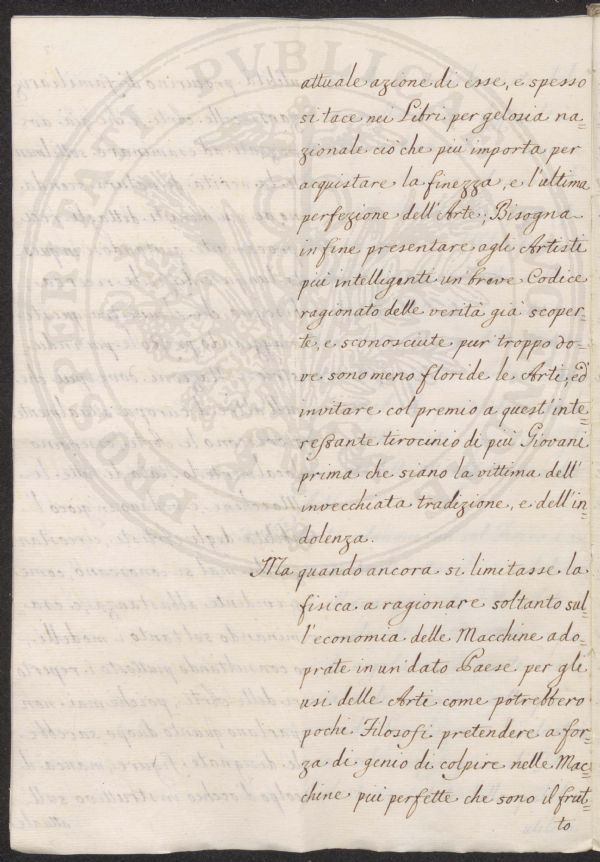 attuale azione di esse, e spesso
si tace nei Libri per gelosia na=
zionale ciò che più importa per
acquistare la finezza, e l'ultima
perfezione dell'Arte; Bisogna
in fine presentare agli Artisti
più intelligenti un breve Codice
ragionato delle verità già scoper=
te, e sconosciute pur troppo do=
ve sono meno floride le Arti, ed
invitare col premio a quest'inte=
ressante tirocinio di più Giovani
prima che siano la vittima dell'
invecchiata tradizione, e dell'in=
dolenza.
Ma quando ancora si limitasse la
fisica a ragionare soltanto sul=
l'economia delle Macchine ado=
prate in un dato Paese per gli
usi delle Arti come potrebbero
pochi Filosofi pretendere a for=
za di genio di colpire nelle Mac=
chine più perfette che sono il frut=
to
PROSPERITATI PVBLICAE